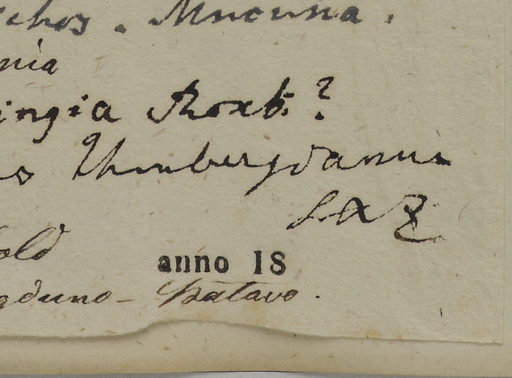 chos. Mucuna.
nia
ingia Roxb.?
us Thunbergianus
S. & Z
old
anno 18
gduno-Batavo.